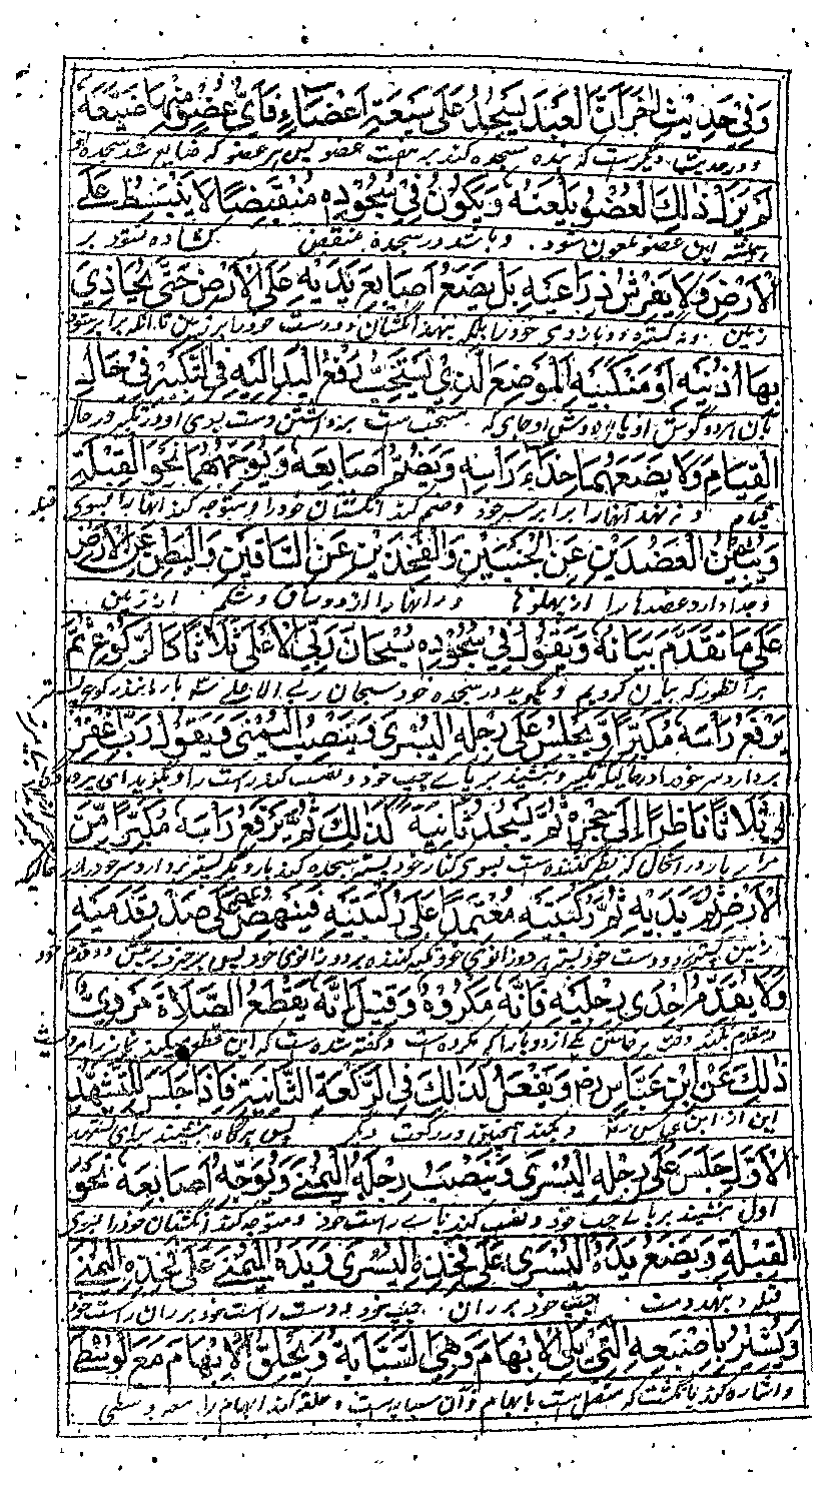 وَفِيْ حَدِيْثٍ اٰخَرَ اَنَّ الْعَبْدَ يَسْجُدُ عَلٰى سَبْعَةِ اَعْضَاءٍ فَاَيُّ عُضْوٍ مِنْهَا ضَيَّعَهُ
ودر حدیث دیگرست که بنده سجده کند بر هفت عضو پس هر عضو که ضایع شد سجده او
لَمْ يَزَلْ ذٰلِكَ الْعُضْوُ يَلْعَنُهُ وَيَكُوْنُ فِيْ سُجُوْدِهٖ مُنْقَبِضًا لَا يَنْبَسِطُ عَلَى
همیشه این عضو ملعون شود و باشد در سجده منقبض کشاده نشود بر
الْاَرْضِ وَلَا يَفْرُشُ ذِرَاعَيْهِ بَلْ يَضَعُ اَصَابِعَ يَدَيْهِ عَلَى الْاَرْضِ حَتّٰى يُحَاذِيَ
زمین ونه گسترد دو بازوی خود را بلکه بنهد انگشتان دو دست خود را بر زمین تا آنکه برابر شود
بِهَا اُذُنَيْهِ اَوْ مَنْكِبَيْهِ الْمَوْضِعَ الَّذِيْ يَسْتَحِبُّ رَفْعُ الْيَدِ اِلَيْهِ فِي التَّكْبِيْرِ فِيْ حَالِ
بآن هر دو گوش او یا دوش او جای که مستحب است برداشتن دست بسوی او در تکبیر در حال
الْقِيَامِ وَلَا يَضَعُهُمَا حِذَاءَ رَأْسِهٖ وَيَضُمُّ اَصَابِعَهُ وَيُوَجِّهُهُمَا نَحْوَ الْقِبْلَةِ
قیام و نه نهد آنها را برابر سر خود وضم کند انگشتان خود را و متوجه کند آنها را بسوی قبله
وَيُبَايِنُ الْعَضُدَيْنِ عَنِ الْجَنْبَيْنِ وَالْفَخِذَيْنِ عَنِ السَّاقَيْنِ وَالْبَطْنِ عَنِ الْاَرْضِ
وجدا دارد عضدها را از پهلوها ورانها را از دو ساق وشکم از زمین
عَلٰى مَا تَقَدَّمَ بَيَانُهُ وَيَقُوْلُ فِيْ سُجُوْدِهٖ سُبْحَانَ رَبِّيَ الْاَعْلٰى ثَلَاثًا كَالرُّكُوْعِ ثُمَّ
بر آنطور که بیان کردیم و بگوید در سجده خود سبحان ربی الاعلی سه بار مانند رکوع پستر
يَرْفَعُ رَأْسَهُ مُكَبِّرًا وَيَجْلِسُ عَلٰى رِجْلِهِ الْيُسْرٰى وَيَنْصِبُ الْيُمْنٰى وَيَقُوْلُ رَبِّ اغْفِرْ
بردارد سر خود را در حالیکه تکبیر وبنشیند بر پای چپ خود ونصب کند راست را وبگوید ای پروردگار
لِيْ ثَلَاثًا نَاظِرًا اِلٰى حِجْرِهٖ ثُمَّ يَسْجُدُ ثَانِيَةً كَذٰلِكَ ثُمَّ يَرْفَعُ رَأْسَهُ مُكَبِّرًا مِّنَ
مرا سه بار در آنحال که نظر کننده است بسوی کنار خود پستر سجده کند بار دیگر پستر بردارد سر خود را از
الْاَرْضِ ثُمَّ يَدَيْهِ ثُمَّ رُكْبَتَيْهِ مُعْتَمِدًا عَلٰى رُكْبَتَيْهِ فَيَنْهَضُ عَلٰى صُدُوْرِ قَدَمَيْهِ
زمین پستر دو دست خود پستر هر دو زانوی خود تکیه کننده بر دو زانوی خود پس برخیزد بر پیش دو قدم خود
وَلَا يُقَدِّمُ اِحْدٰى رِجْلَيْهِ فَاِنَّهُ مَكْرُوْهٌ وَقِيْلَ اِنَّهُ يَقْطَعُ الصَّلَاةَ مَرْوِيٌّ
ومقدم نکند وقت برخاستن یکی از دو پا را که مکروه است وگفته شده است که این قطع میکند نماز را مروی شد
ذٰلِكَ عَنْ ابْنِ عَبَّاسٍ رض وَيَفْعَلُ كَذٰلِكَ فِي الرَّكْعَةِ الثَّانِيَةِ فَاِذَا جَلَسَ لِلتَّشَهُّدِ
این از ابن عباس رض وبکند همچنین در رکعت دیگر پس هرگاه بنشیند برای تشهد
الْاَوَّلِ جَلَسَ عَلٰى رِجْلِهِ الْيُسْرٰى وَيَنْصِبُ رِجْلَهُ الْيُمْنٰى وَيُوَجِّهُ اَصَابِعَهُ نَحْوَ
اول بنشیند بر پای چپ خود ونصب کند پای راست خود ومتوجه کند انگشتان خود را بسوی
الْقِبْلَةِ وَيَضَعُ يَدَهُ الْيُسْرٰى عَلٰى فَخِذِهِ الْيُسْرٰى وَيَدَهُ الْيُمْنٰى عَلٰى فَخِذِهِ الْيُمْنٰى
قبله وبنهد دست چپ خود بر ران چپ خود ودست راست خود بر ران راست خود
وَيُشِيْرُ بِاِصْبَعِهِ الَّتِيْ تَلِي الْاِبْهَامَ وَهِيَ السَّبَّابَةُ وَيُحَلِّقُ الْاِبْهَامَ مَعَ الْوُسْطٰى
واشاره کند بانگشت که متصل است بابهام وآن سبابه است وحلقه کند ابهام را معه وسطی